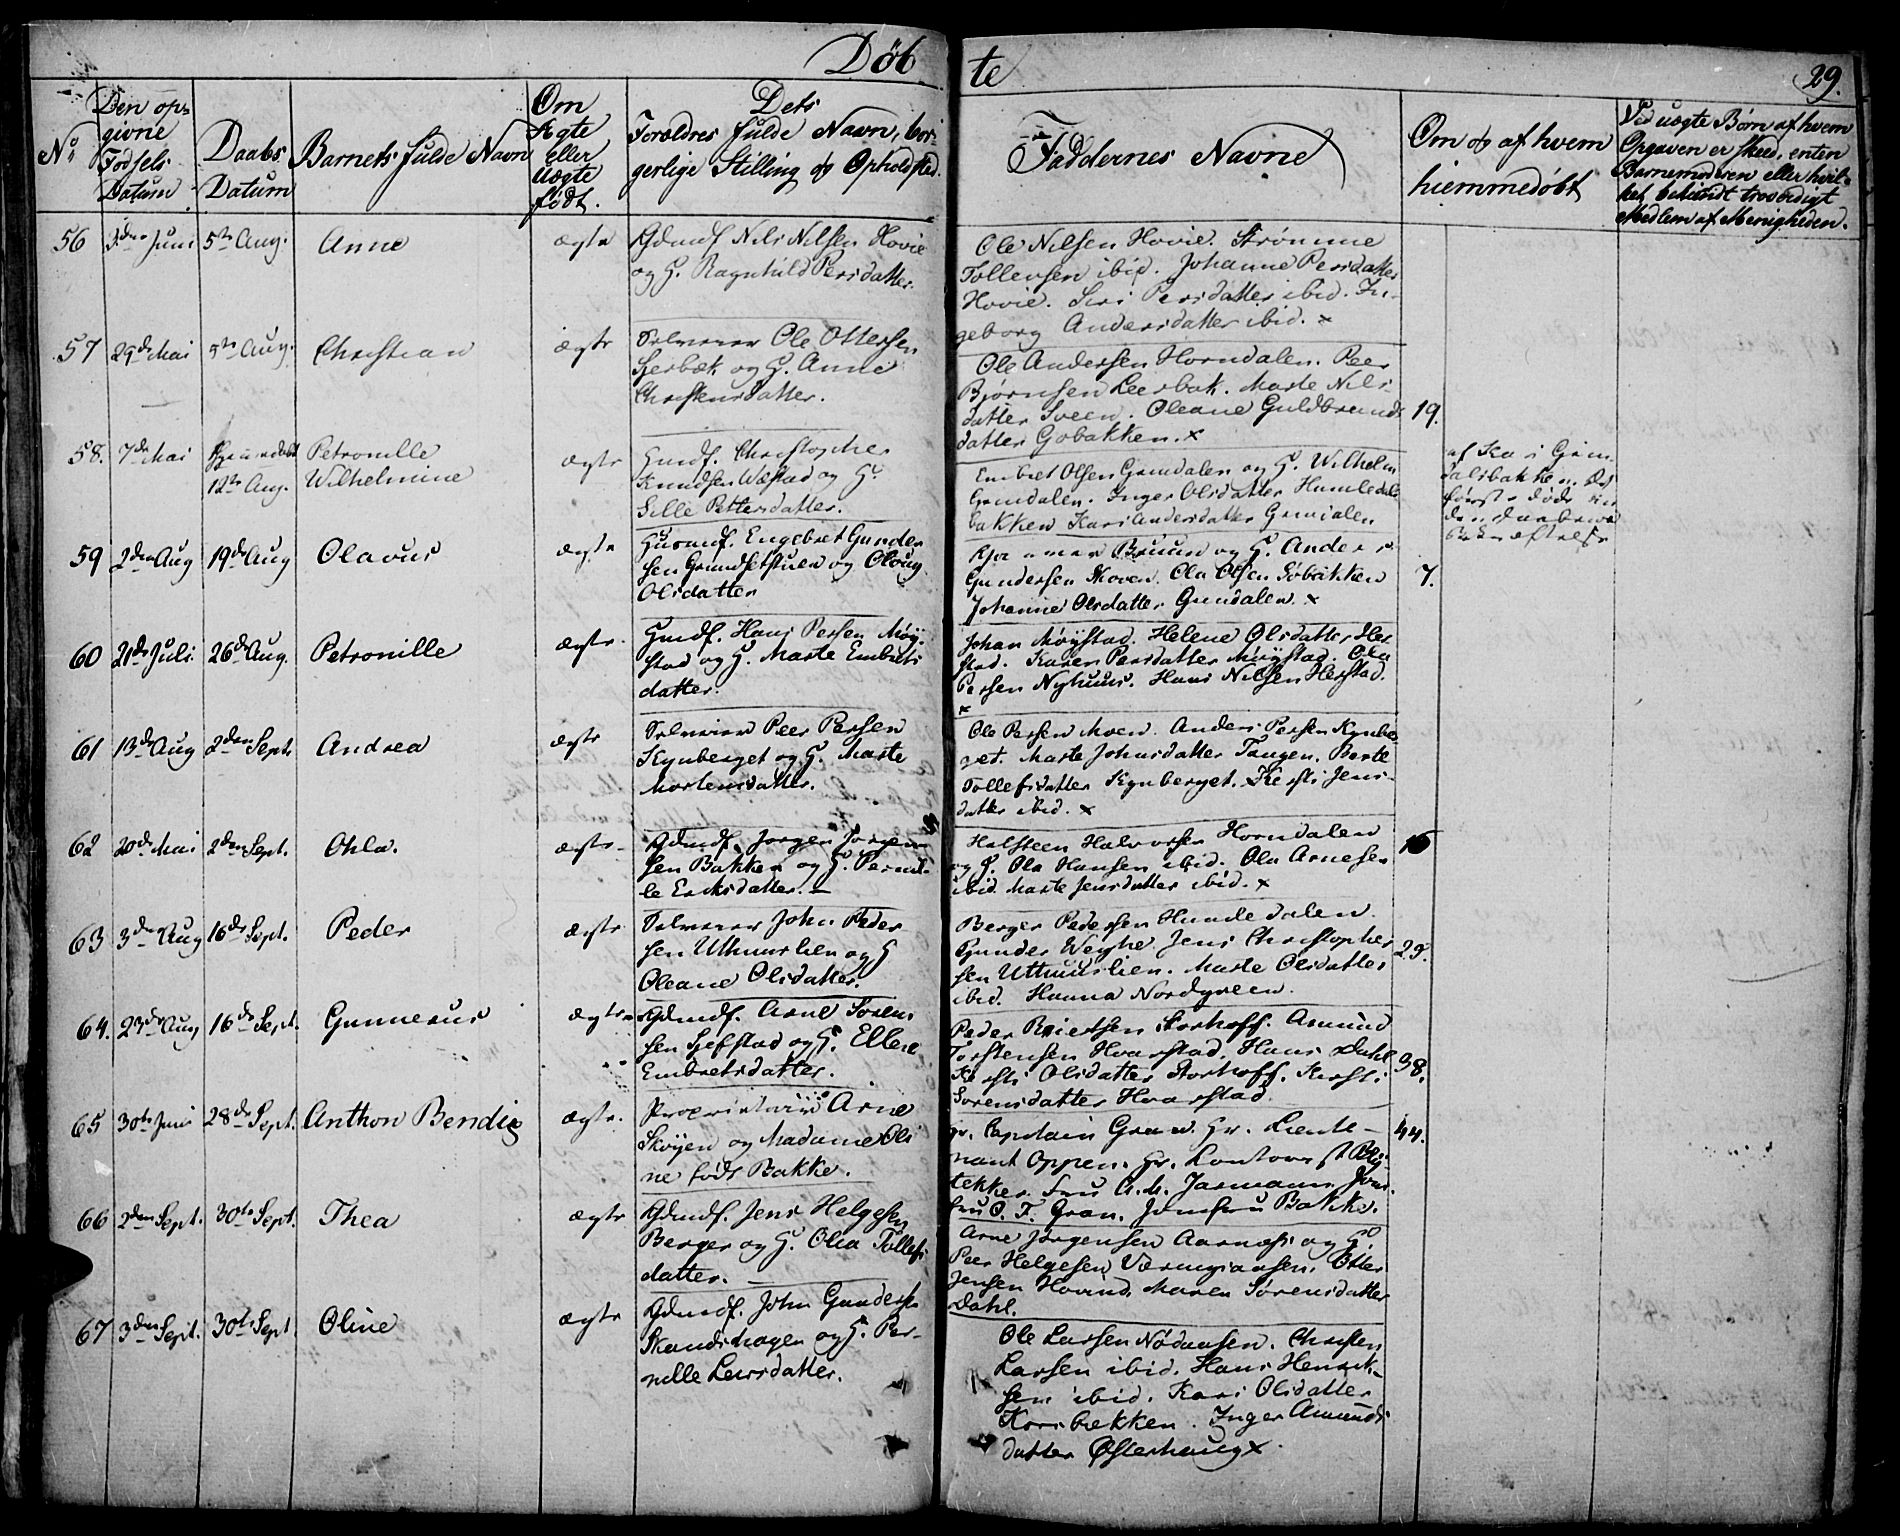 Døb te 29.
No.
Den op=
givne
Fødsels
Datum
Daabs
Datum
Barnets fulde Navn
Om
Ægte
eller
Uægte
født.
Dets
Forældres fulde Navn, bor=
gerlige Stilling og Opholdsted.
Faddernes Navne
Om og af hvem
hiemmedøbt
Ved uægte Børn af hvem
Opgaven er skeed, enten
Barnemoderen eller hvil=
ket bekiendt troværdigt
Medlem af Menigheden.
56 3die Juni 5te Aug. Anne ægte Gdmdf. Nils Nilsen Hovie
og H. Ragnhild Persdatter.
Ole Nilsen Hovie. Strømme
Tollevsen ibid. Johanne Persdatter
Hovie. Siri Persdatter ibid. In-
geborg Andersdatter ibid. x
57 29de Mai 5te Aug. Christian ægte Selveier Ole Ottersen
Sjerbæk og H. Anne
Christensdatter.
Ole Andersen Horndalen. Peer
Bjørnsen Leerbak. Marte Nils
datter Sveen. Oleane Guldbrands
datter Gobakken. x
19.
58. 7de Mai Hjemmedøbt
12te Aug.
Petronille
Wilhelmine
ægte Hmdf. Christopher
Knudsen Wæstad og H.
Sille Pettersdatter.
Embret Olsen Grindalen og H. Wilhelm
Grindalen. Inger Olsdatter Humledals
bakken Kari Andersdatter Grindalen
af Kari Grin-
dalsbakken. Det
første døde
den daabens
Bekræftelse
59 2den Aug 19de Aug Olavus ægte Husmdf. Engebret Gunder
sen Grundsetstuen og Oloug
Olsdatter
Bruun og H. Anders
Gundersen Skoven. Ola Olsen Gobakken
Johanne Olsdatter Grindalen. x
7.
60 21de Juli 26de Aug. Petronille ægte Gmdf. Hans Persen Møy-
stad og H. Marte Embrets
datter.
Johan Møystad. Helene Olsdatter Her
stad. Karen Persdatter Møystad. Ola
Persen Nyhuus. Hans Nilsen Herstad.
x
61 13de Aug 2den Septr Andrea ægte Selveier Peer Persen
Kynberget og H. Marte
Mortensdatter.
Ole Persen Moen. Anders Persen Kynber-
get. Marte Johnsdatter Tangen. Berte
Tollefsdatter Kynberget. Kersti Jens-
datter ibid. x
62 20de Mai 2den Sept. Ohla. ægte Gdmdf. Jørgen Jørgen-
sen Bakken og H. Pernil-
le Eriksdatter.
Halsteen Halvorsen Horndalen
og H. Ola Hansen ibid. Ola Arnesen
ibid. Marte Jensdatter ibid. x
16
63 3die Aug 16de Sept. Peder ægte Selveier John Peder
sen Uthuuslien og H
Oleane Olsdatter.
Berger Pedersen Humledalen.
Gunder Weghe. Jens Christopher
sen Uthuuslien. Marte Olsdatter
ibid. Hanna Nordgreen.
64. 23de Aug 16de Sept. Gunnerus ægte Gdmdf. Arne Soren
sen Sjefstad og H. Ellene
Embretsdatter.
Peder Reiersen Storhoff. Amund
Torstensen Hvarstad. Hans Dahl
Kersti Olsdatter Storhoff. Kersti
Sorensdatter Hvarstad.
38.
65 30te Juni 28de Sept. Anthon Bendix ægte. Proprietair Arne
Skøyen og Madame Oli
ne født Bakke.
Hr. Capitain Gran. Hr. Liente-
nant Oppen. Hr. Contorist Bly-
tekker. Fru A.M. Jarmann. Jom
fru O. F. Gran. Jomfru Bakke.
44.
66 2den Sept. 30te Sept. Thea ægte Gdmdf. Jens Helgesen
Berger og H. Olia Tollefs
datter.
Arne Jørgensen Aarness og H.
Peer Helgesen Otter
Jensen Hovind. Maren Sørensdatter
Dahl.
67 3die Sept. 30te Sept Oline ægte Gdmdf. John Gunders
Skandshagen og H. Per-
nille Larsdatter.
Ole Larsen Nødaasen. Christen
Larsen ibid. Hans Henrik-
sen ibid. Kari Olsdatter
Korsbækken. Inger Amunds
datter Østerhaug x.